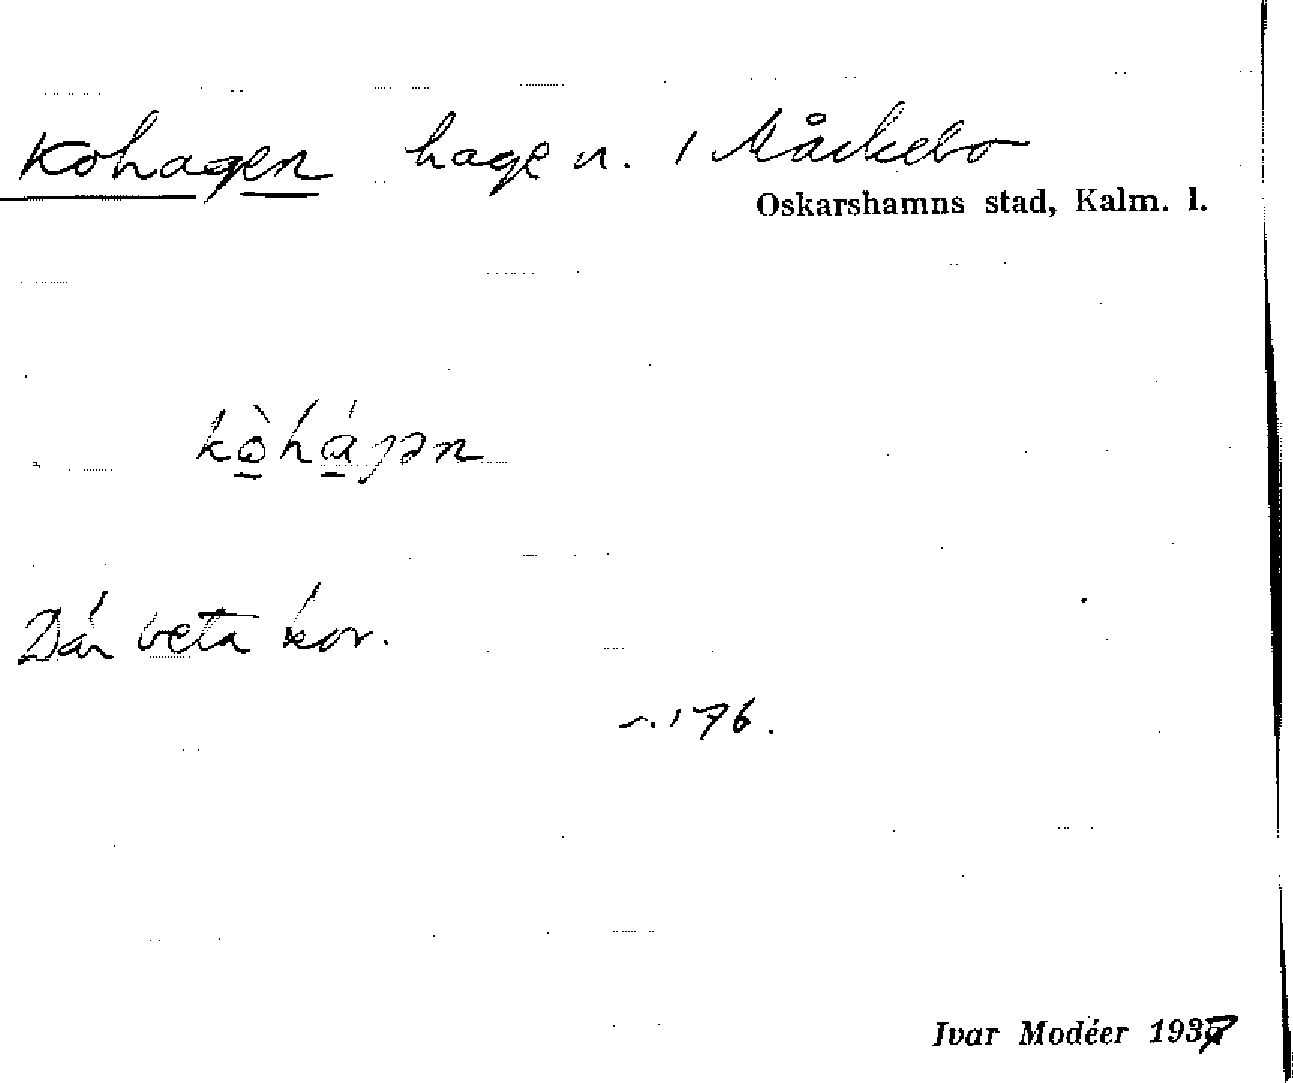 Kohagen hage n. i Måckebo
Oskarshamns stad, Kalm. l.
kò̱há̱ɡən
Där beta kor.
n. 176.
Ivar Modéer 1937